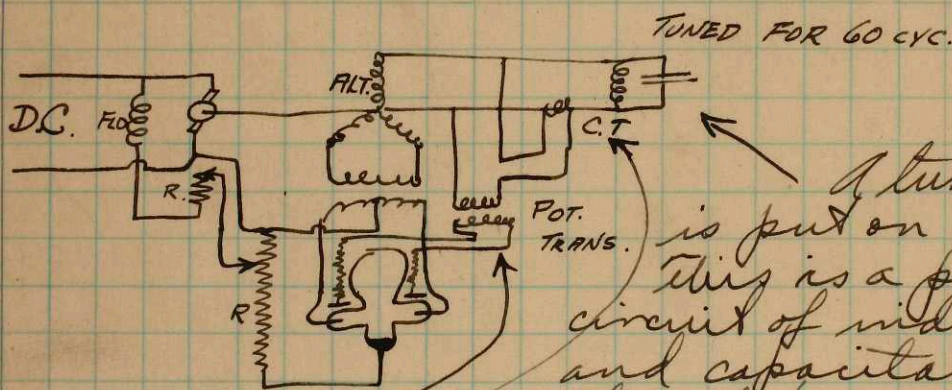 TUNED FOR 60 CYC.
ALT.
D.C. FLD
C.T
R.
POT.
TRANS.
R
A tu
is put on
this is a p
circuit of ind
and capacita